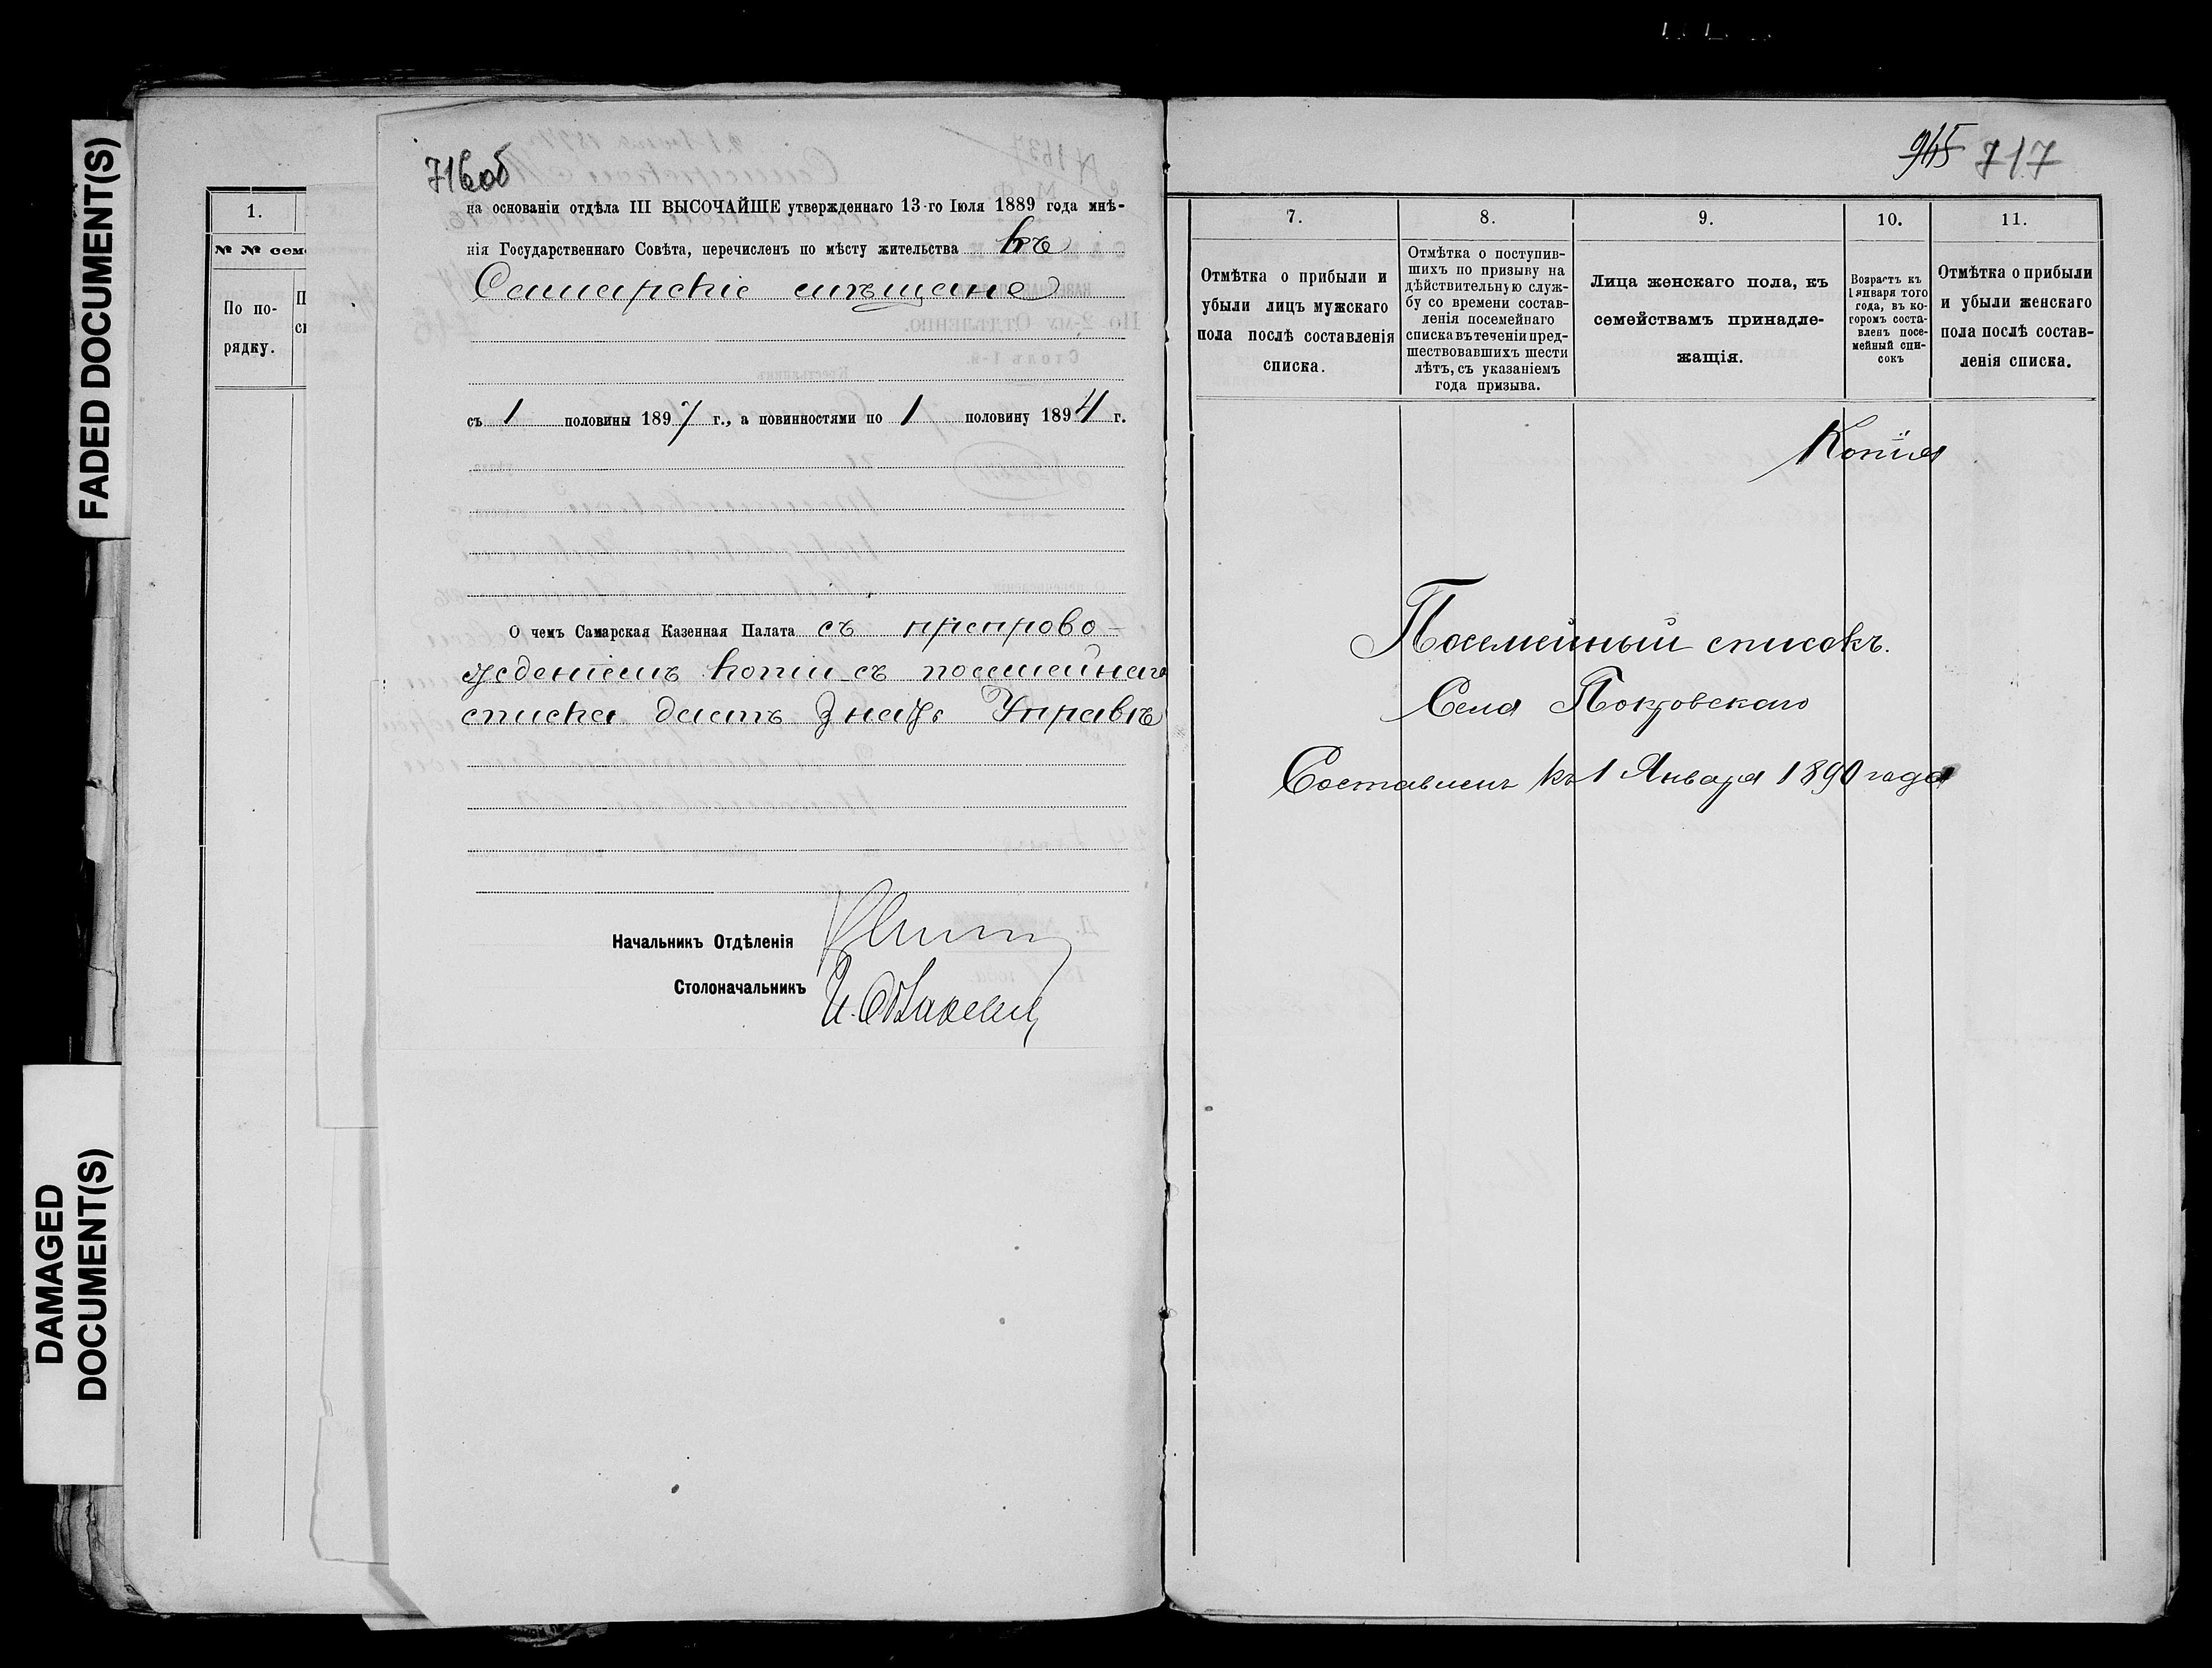 FADED DOCUMENT(S)
DAMAGED
DOCUMENT(S)
1.
№ № сем
По по-
рядку.
716об
на основаніи отдѣла III ВЫСОЧАЙШЕ утвержденнаго 13-го Іюля 1889 года мнѣ-
нія Государственнаго Совѣта, перечисленъ по мѣсту жительства въ
Самарскіе мѣщане
съ 1 половины 1897 г., а повинностями по 1 половину 1894 г.
О чемъ Самарская Казенная Палата съ препрово-
жденіемъ копіи съ посемейнаго
списка даетъ знать Управѣ
Начальникъ Отдѣленія
Столоначальникъ
945 717
7.
Отмѣтка о прибыли и
убыли лицъ мужскаго
пола послѣ составленія
списка.
8.
Отмѣтка о поступив-
шихъ по призыву на
дѣйствительную служ-
бу со времени состав-
ленія посемейнаго
списка въ теченіи пред-
шествовавшихъ шести
лѣтъ, съ указаніемъ
года призыва.
9.
Лица женскаго пола, къ
семействамъ принадле-
жащія.
10.
Возрастъ къ
1 января того
года, въ ко-
горомъ соста-
вленъ посе-
мейный спи-
сокъ
11.
Отмѣтка о прибыли
и убыли женскаго
пола послѣ состав-
ленія списка.
Копія
Посемейный списокъ.
Села Покровскаго
Составленъ къ 1 Января 1890 года